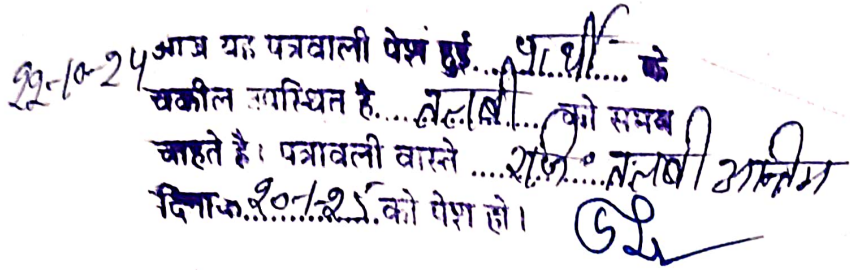 22-10-24 आज यह पत्रवाली पेश हुई.... प्रार्थी..... के
वकील उपस्थित है.....तलबी.... को समय
चाहते है। पत्रावली वास्ते .....रजि०...तलबी अन्तिम
दिनांक 20-1-25 को पेश हो।